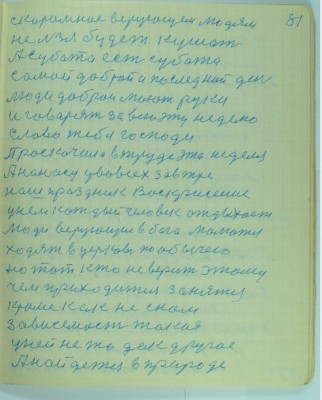 81
скоромное верующем людям
не лзя будет кушат
А субата ест субата
самой доброй и последний ден
люди доброи моют руки
и говарят за всю эту неделю
слово тебя господи
Проскочила в труде эта неделя
А на
завтре
наш праздник Воскрисение
у нем каждый человек отдыхает
люди верующие в бога
ходят в церковь по обычаю
но тот кто не верит этому
чем приходится занятя
кроме как не сном
Зависемост такая
у ней не то дак другое
А найдется в природе